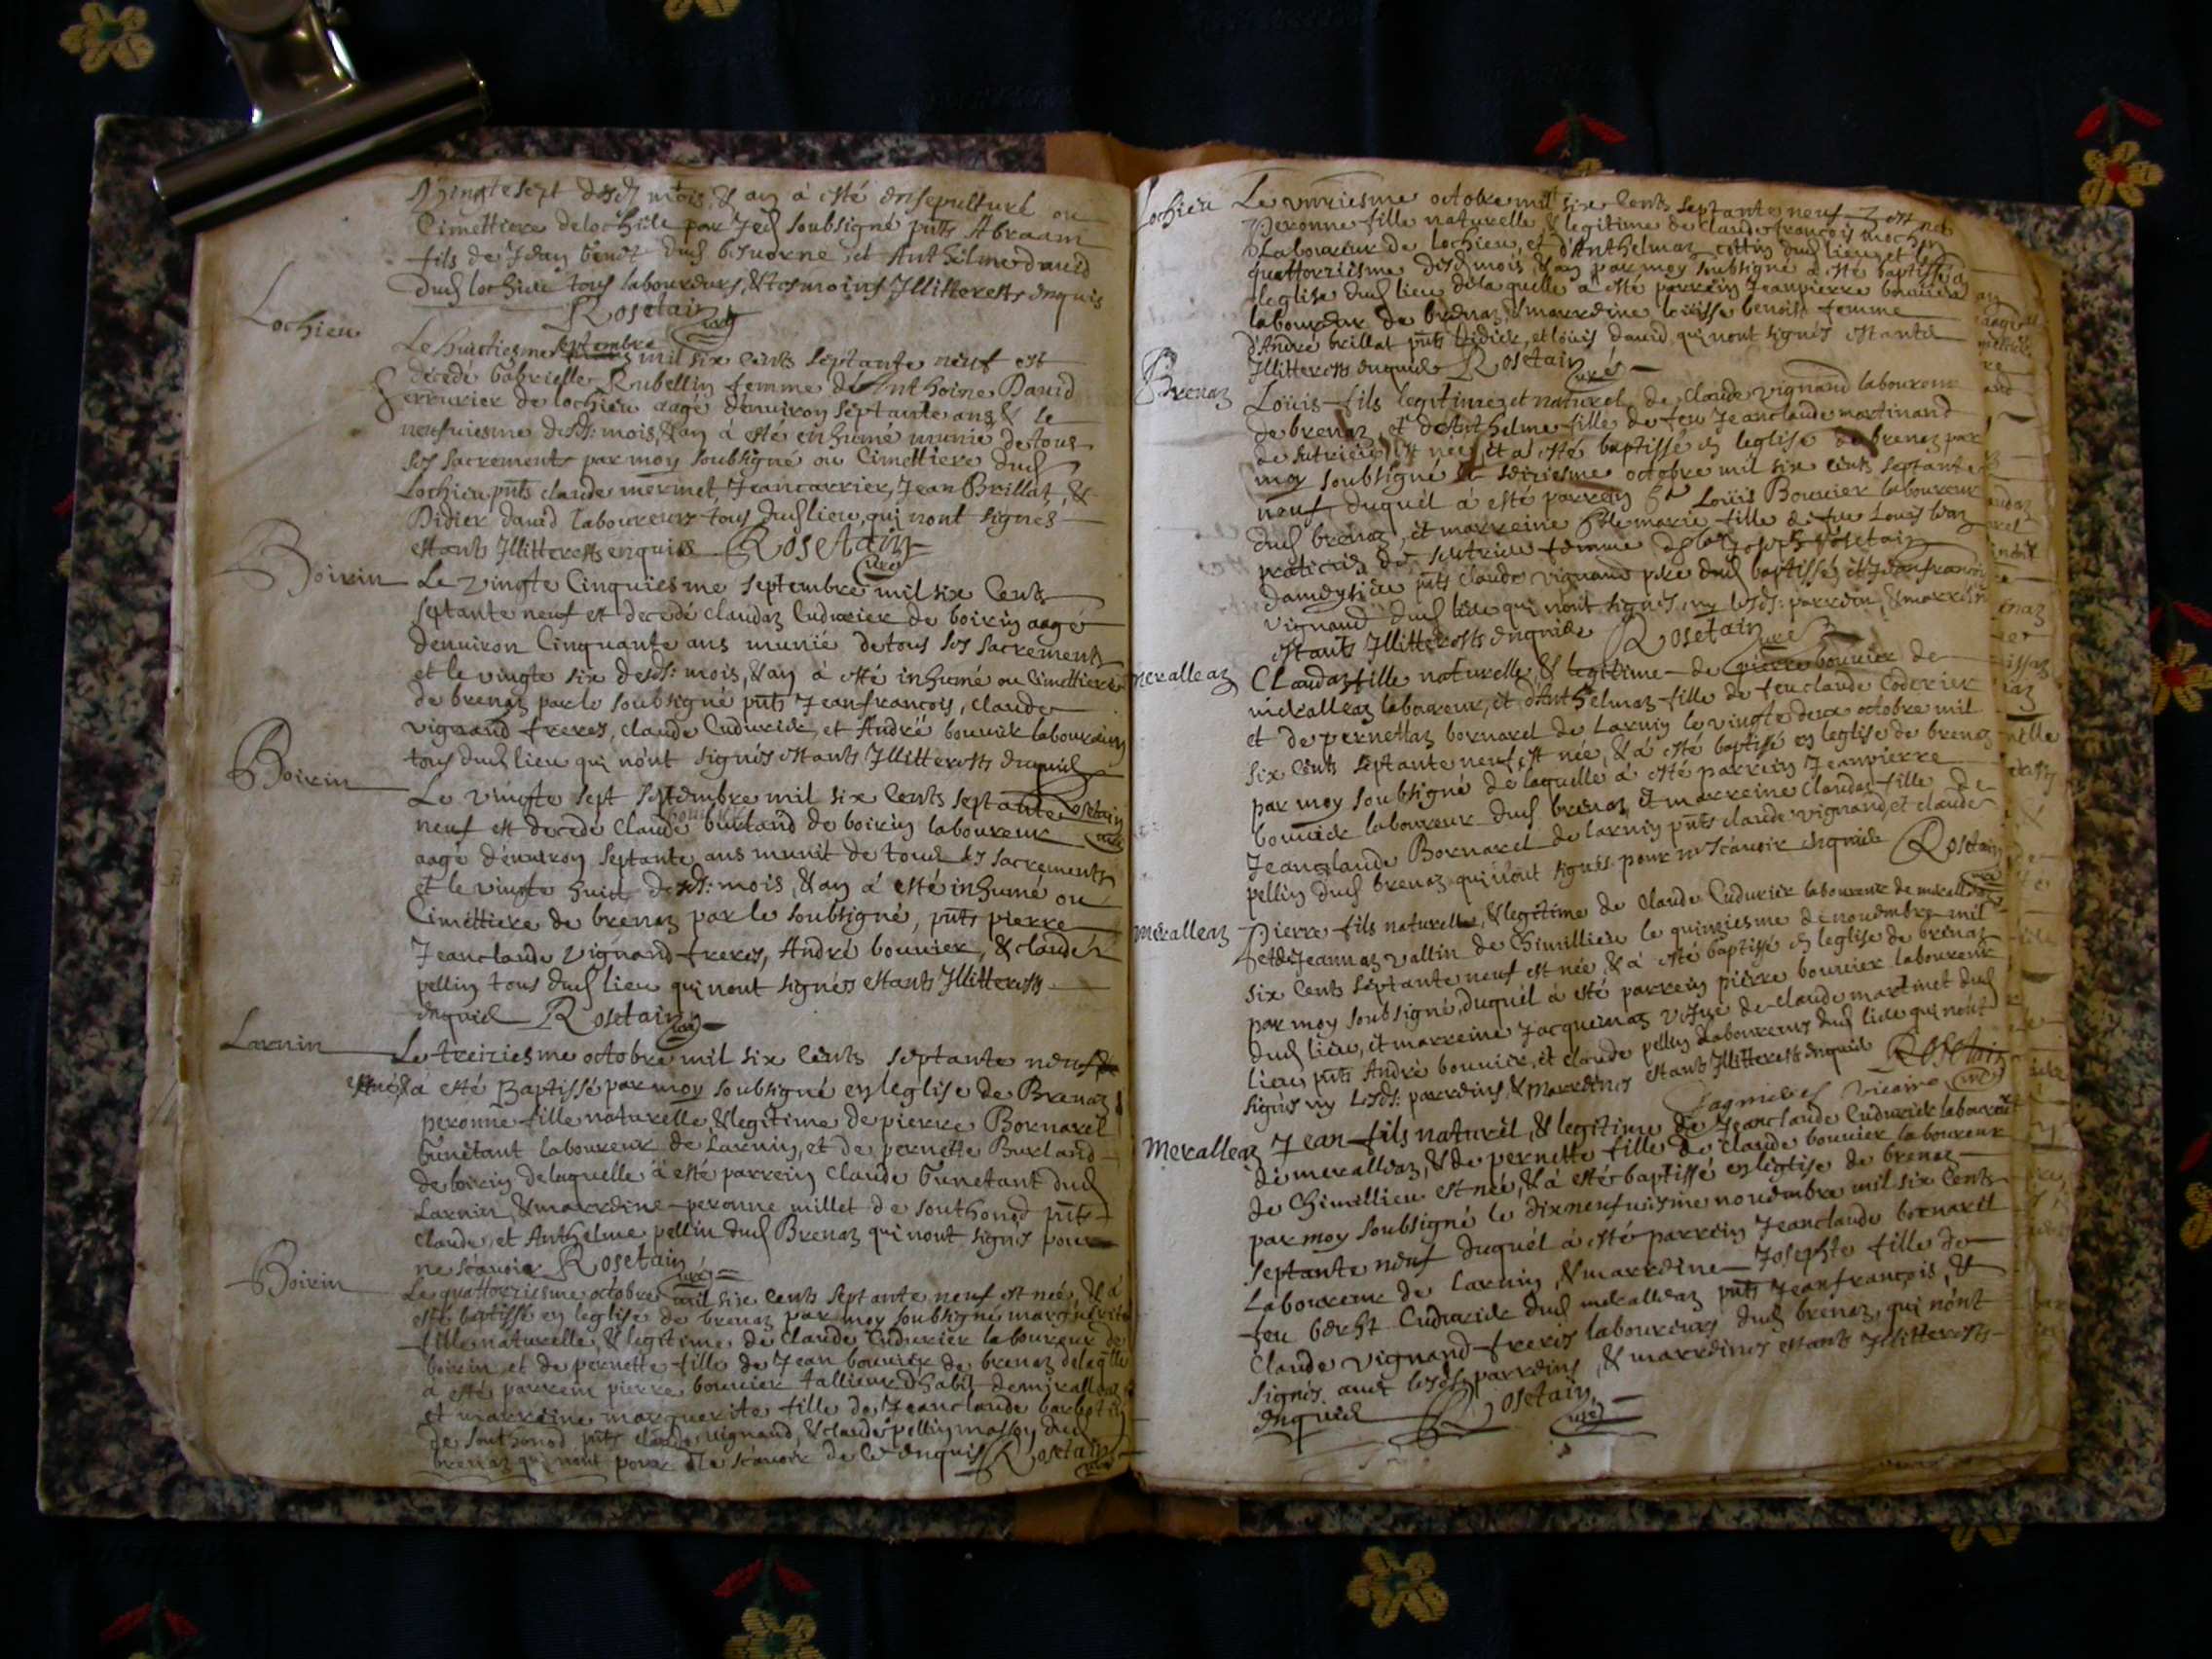 Vingte sept desd mois, & an à esté ensepulturé ou
Cimettiere de lochieu par soubsigné pnts Abraam
fils de Jean benoit dud et Anthelme david
dud lochieu tous laboureurs, & tesmoings Illitteres enquis
Rosetain curé
Lochieu
Le huictiesme septembre mil six cents septante neuf est
decedé Gabrielle Rubellin femme de Anthoine David
serrurier de lochieu aagé denviron septante ans & le
neufviesme desd: mois, & an à esté inhumé munie de tous
ses sacrements par moy soubsigné ou Cimettiere dud
Lochieu pnts claude mermet, Jean carrier, Jean Brillat, &
Didier david laboureurs tous dud lieu, qui nont signés
estants Illitteres enquis Rosetain curé
Boirin
Le vingte cinquiesme septembre mil six cents
septante neuf est decedé claudaz Cudurier de boirin aagé
denviron Cinquante ans munie de tous ses sacrements
et le vingte six desd: mois, & an à esté inhumé ou Cimettiere
de brenaz par le soubsigné pnts Jeanfrancois, claude
vignand freres, claude Cudurier, et André bouvier laboureurs
tous dud lieu qui nont signés estants Illitteres enquis
Rosetain curé
Boirin
Le vingte sept septembre mil six cents septante
neuf est decedé Claude burland de boirin laboureur
aagé denviron septante ans munit de tous ses sacrements
et le vingte huict desd: mois, & an à esté inhumé ou
Cimettiere de brenaz par le soubsigné, pnts pierre
Jeanclaude vignand freres, André bouvier, & claude
pellin tous dud lieu qui nont signés estants Illitteres
enquis Rosetain curé
Larnin
Le treiziesme octobre mil six cents septante neuf
est né & à esté Baptissé par moy soubsigné en leglise de Brenaz
peronne fille naturelle & legitime de pierre Bornarel
Funetant laboureur de Larnin, et de pernette Burland
de boirin de laquelle à esté parrein Claude Funetant dud
Larnin, & marreine peronne millet de southonod pnts
Claude, et Anthelme pellin dud Brenaz qui nont signés pour
ne scavoir Rosetain curé
Boirin
Le quattorziesme octobre mil six cents septante neuf est née, & à
esté baptissé en leglise de brenaz par moy soubsigné marguerite
fille naturelle, & legitime de claude Cudurier laboureur de
boirin et de pernette fille de Jean bouvier de brenaz de laqlle
à esté parrein pierre bouvier tallieur d'habit de meralleaz
et marreine marguerite fille de Jeanclaude
de southonod pnts claude vignand, & claude pellin masson dud
brenaz qui nont pour ne scavoir de ce enquis Rosetain curé
Lochieu
Le unziesme octobre mil six cents septante neuf est née
Peronne fille naturelle, & legitime de claude françois mochon
Laboureur de lochieu, et d'Anthelmaz cottin dud lieu, et le
quattorziesme desd mois, & an par moy soubsigné à esté baptissé en
leglise dud lieu de laquelle à esté parrein Jeanpierre bouvier
laboureur de brenaz, & marreine loüisse benoist femme
d'André brillat pnts Didier, et loüis david qui nont signés estants
Illitteres enquis Rosetain curé
Brenaz
Loüis fils legitime et naturel de claude vignand laboureur
de brenaz, et d'Anthelme fille de feu Jeanclaude martinand
de sutrieu, est née, et à esté baptissé en leglise de brenaz par
moy soubsigné le seiziesme octobre mil six cents septante
neuf, duquel à esté parrein Loüis Bouvier laboureur
dud brenaz, et marreine marie fille de feu Louis
praticien de sutrieu femme de Joseph Rosetain
pnts claude vignand pere dud baptissé, et Jeanfrancois
vignand dud lieu qui nont signés ny lesd: parrein, & marreine
estants Illitteres enquis Rosetain curé
meralleaz
Claudaz fille naturelle, & legitime de pierre bouvier de
meralleaz laboureur, et d'Anthelmaz fille de feu claude Coderier
et de pernettaz bornarel de Larnin le vingte deux octobre mil
six cents septante neuf est née, & à esté baptissé en leglise de brenaz
par moy soubsigné de laquelle à esté parrein Jeanpierre
bouvier laboureur dud brenaz, et marreine claudaz fille de
Jeanclaude Bornarel de larnin pnts claude vignand, et claude
pellin dud brenaz qui nont signés pour ne scavoir enquis Rosetain curé
meralleaz
Pierre fils naturelle, & legitime de Claude Cudurier laboureur de meralleaz
et de Jeannaz vallin de Chimillieu le quinziesme de novembre mil
six cents septante neuf est née, & à esté baptissé en leglise de brenaz
par moy soubsigné, duquel à esté parrein pierre bouvier laboureur
dud lieu, et marreine Jacquemaz vefve de claude martinet dud
lieu, pnts André bouvier, et claude pellin laboureurs dud lieu qui nont
signés ny lesd: parreins, & marreines estants Illitteres enquis Rosetain curé
vicaire
Meralleaz
Jean fils naturel, & legitime de Jeanclaude Cudurier laboureur
de meralleaz, & de pernette fille de claude bouvier laboureur
de Chimillieu est né, & à esté baptissé en leglise de brenaz
par moy soubsigné le dixneufviesme novembre mil six cents
septante neuf duquel à esté parrein Jeanclaude bornarel
Laboureur de larnin, & marreine Josephte fille de
feu Cudurier dud meralleaz pnts Jeanfrancois, &
Claude vignand freres laboureurs dud brenaz, qui nont
signés avec lesd parreins, & marreines estants Illitteres
enquis Rosetain curé